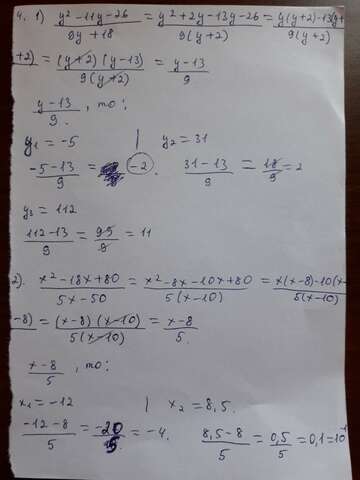 4. 1) (y²-11y-26)/(9y+18) = (y²+2y-13y-26)/(9(y+2)) = (y(y+2)-13(y+
+2))/ = ((y+2)(y-13))/(9(y+2)) = (y-13)/9
(y-13)/9, то:
y₁ = -5 | y₂ = 31
(-5-13)/9 = -2. (31-13)/9 = 18/9 = 2
y₃ = 112
(112-13)/9 = 99/9 = 11
2). (x²-18x+80)/(5x-50) = (x²-8x-10x+80)/(5(x-10)) = (x(x-8)-10(x-)/(5(x-10)
-8) = ((x-8)(x-10))/(5(x-10)) = (x-8)/5.
(x-8)/5, то:
x₁ = -12 | x₂ = 8,5.
(-12-8)/5 = -20/5 = -4. (8,5-8)/5 = 0,5/5 = 0,1 = 10⁻